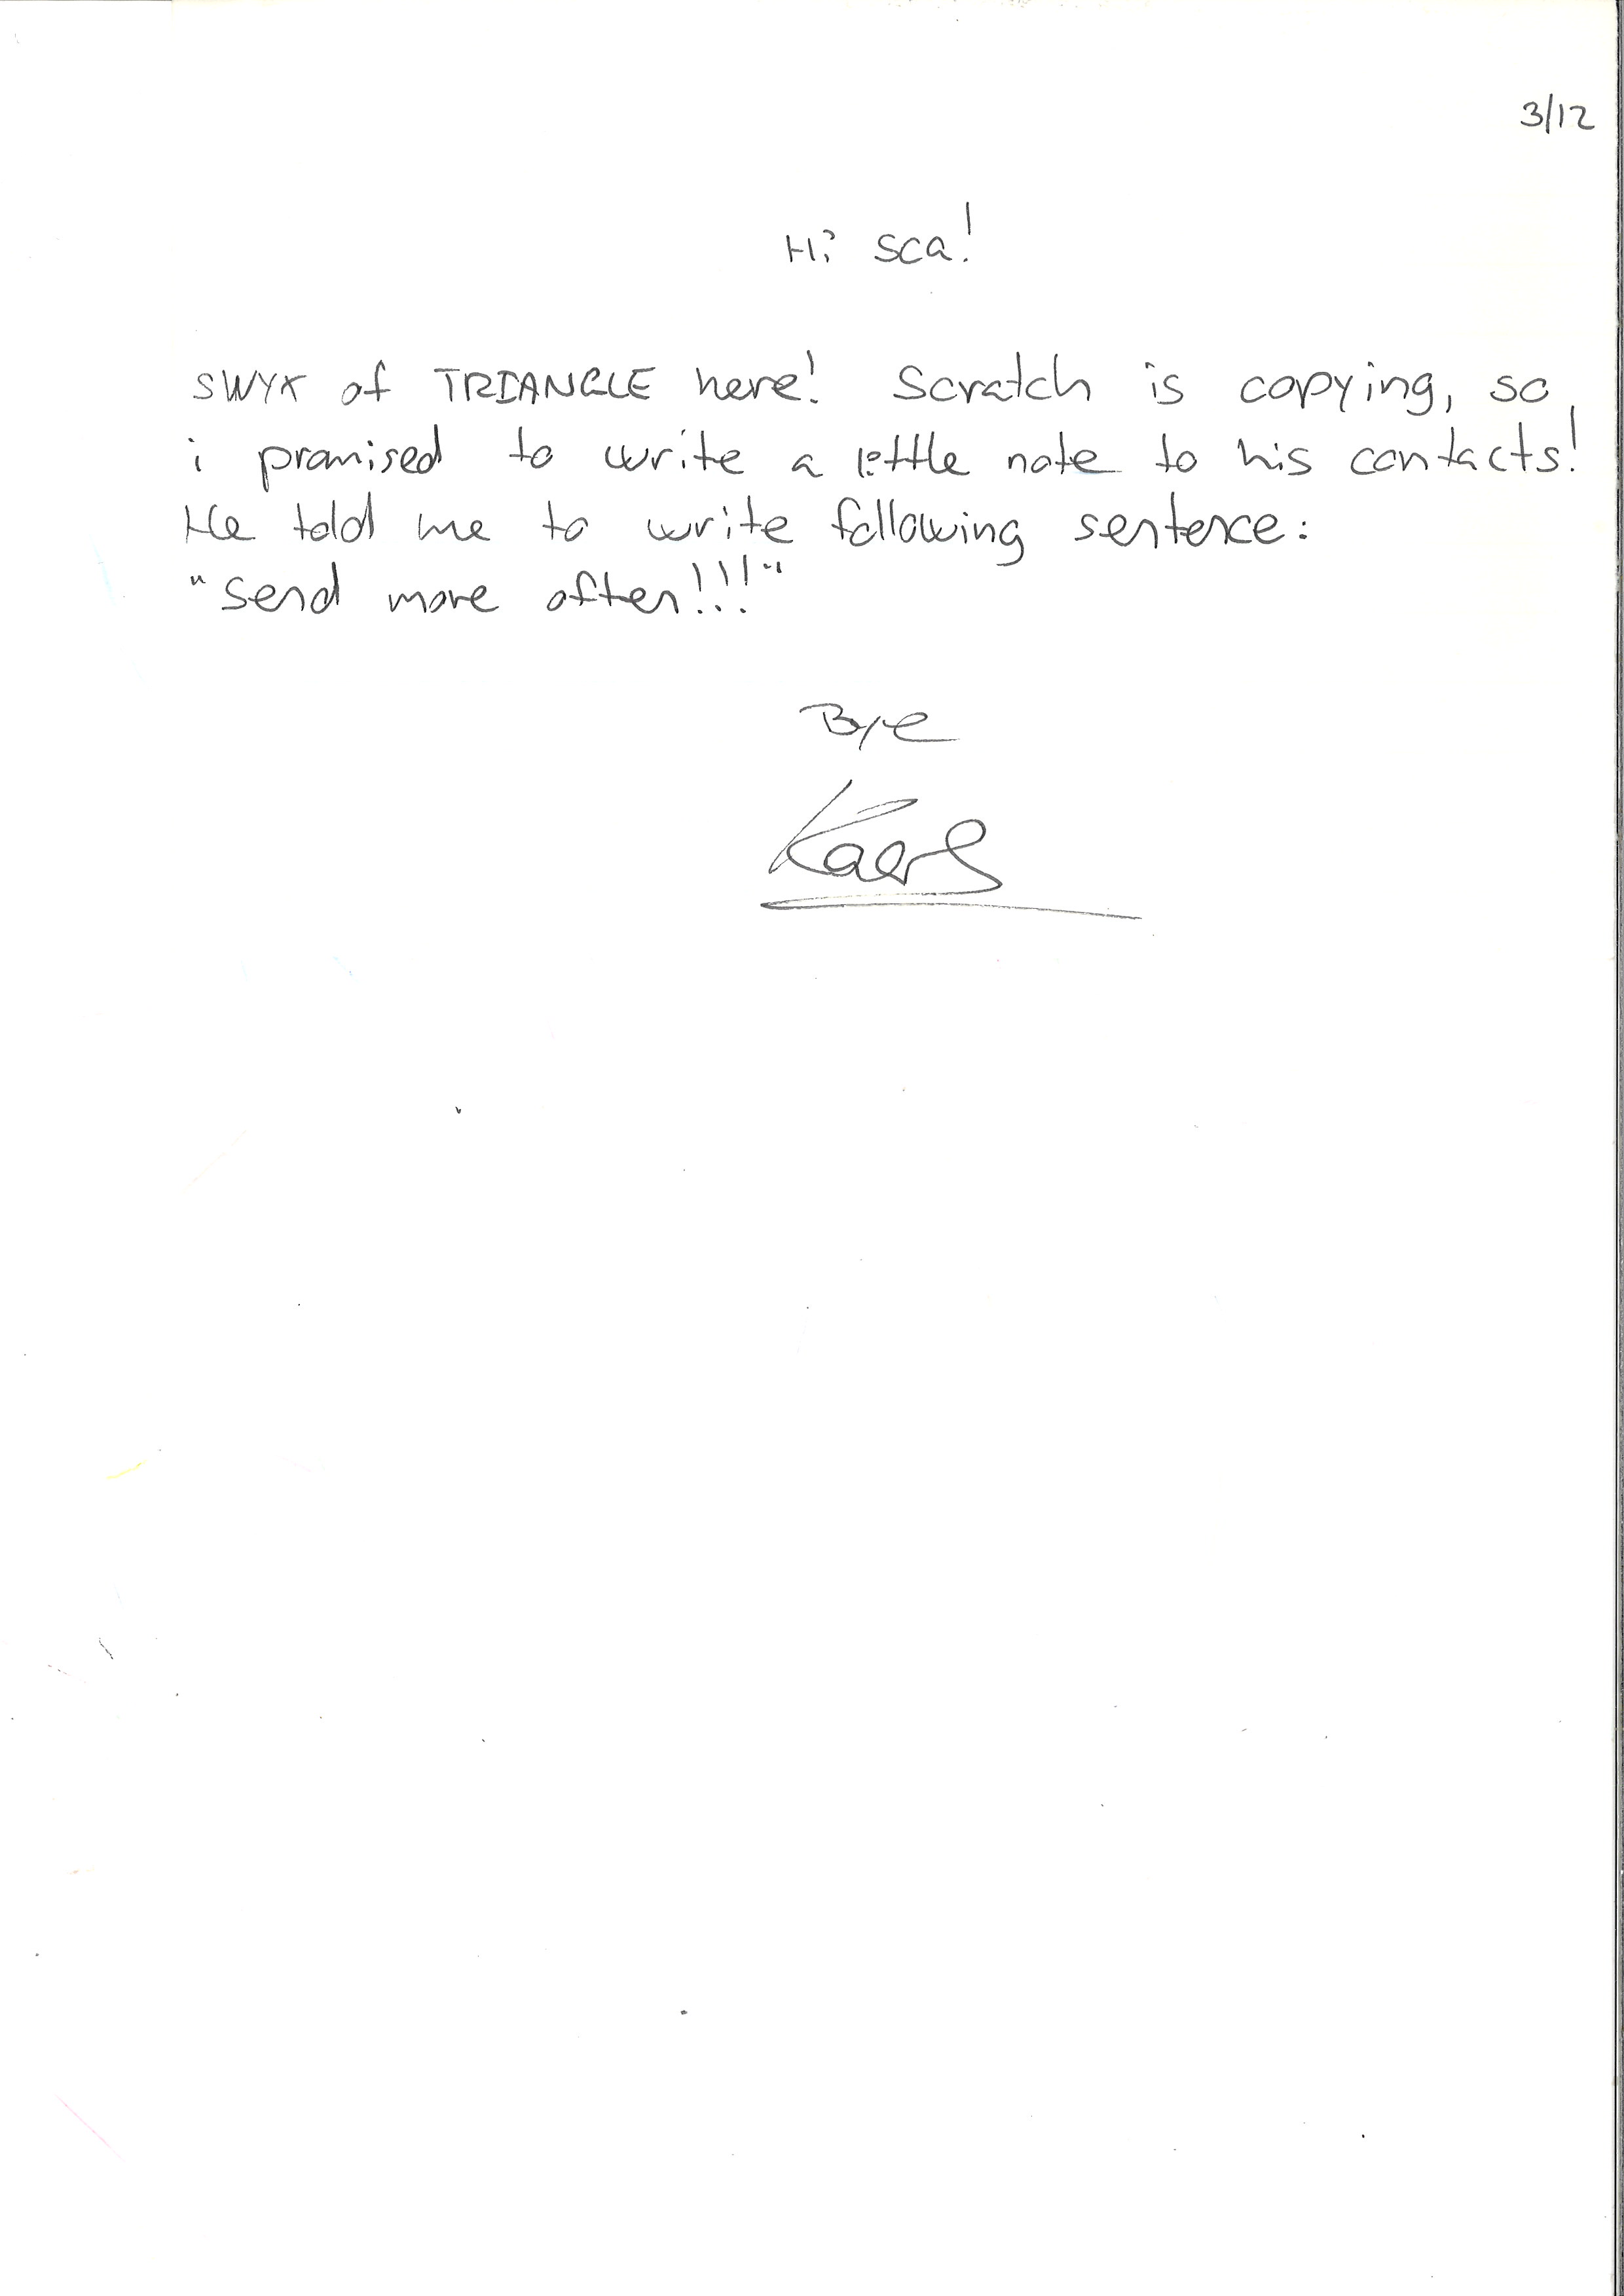 3/12
Hi sca!
SWYX of TRIANGLE here! Scratch is copying, so
i promised to write a little note to his contacts!
He told me to write following sentence:
"Send more often!!!"
Bye